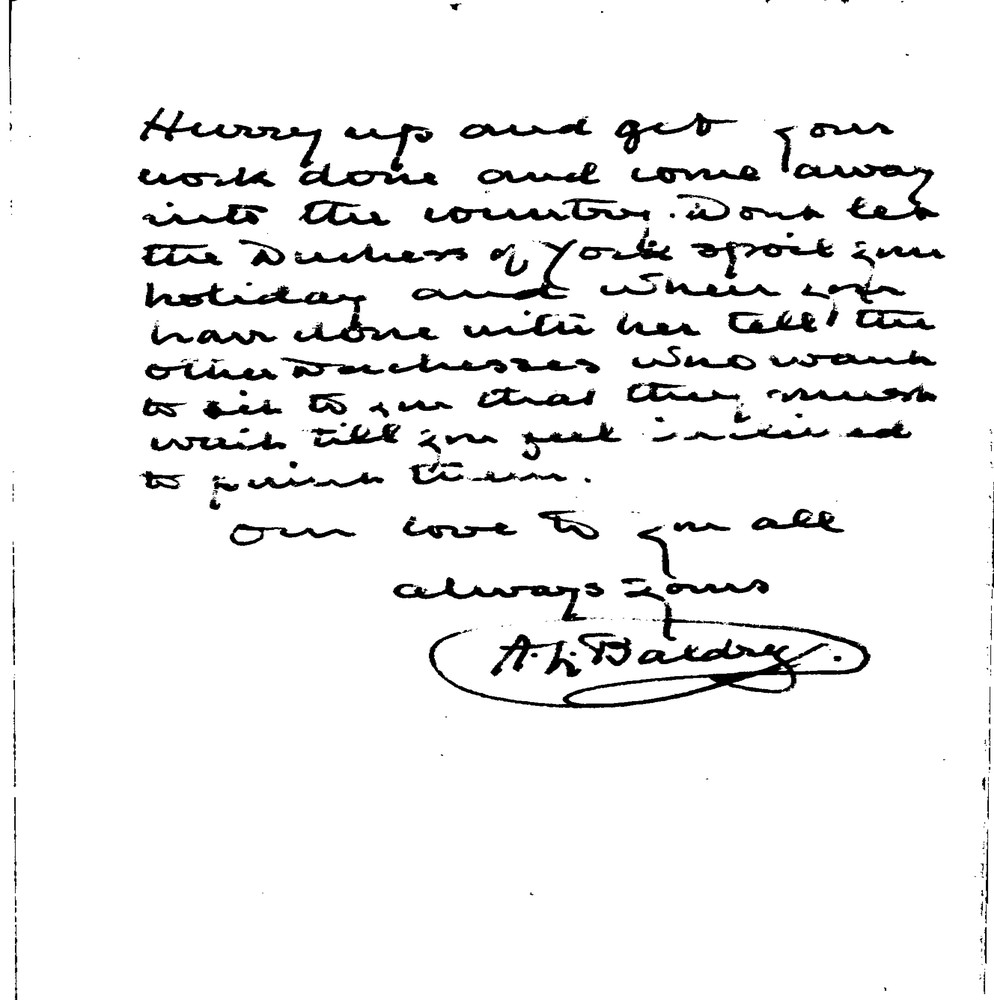 Hurry up and get your
work done and come away
into the country. Dont let
the Duchess of York spoil your
holiday and when you
have done with her tell the
other Duchesses who want
to sit to you that they must
wait till you feel inclined
to paint them.
Our love to you all
always yours
A. L. Baldry.